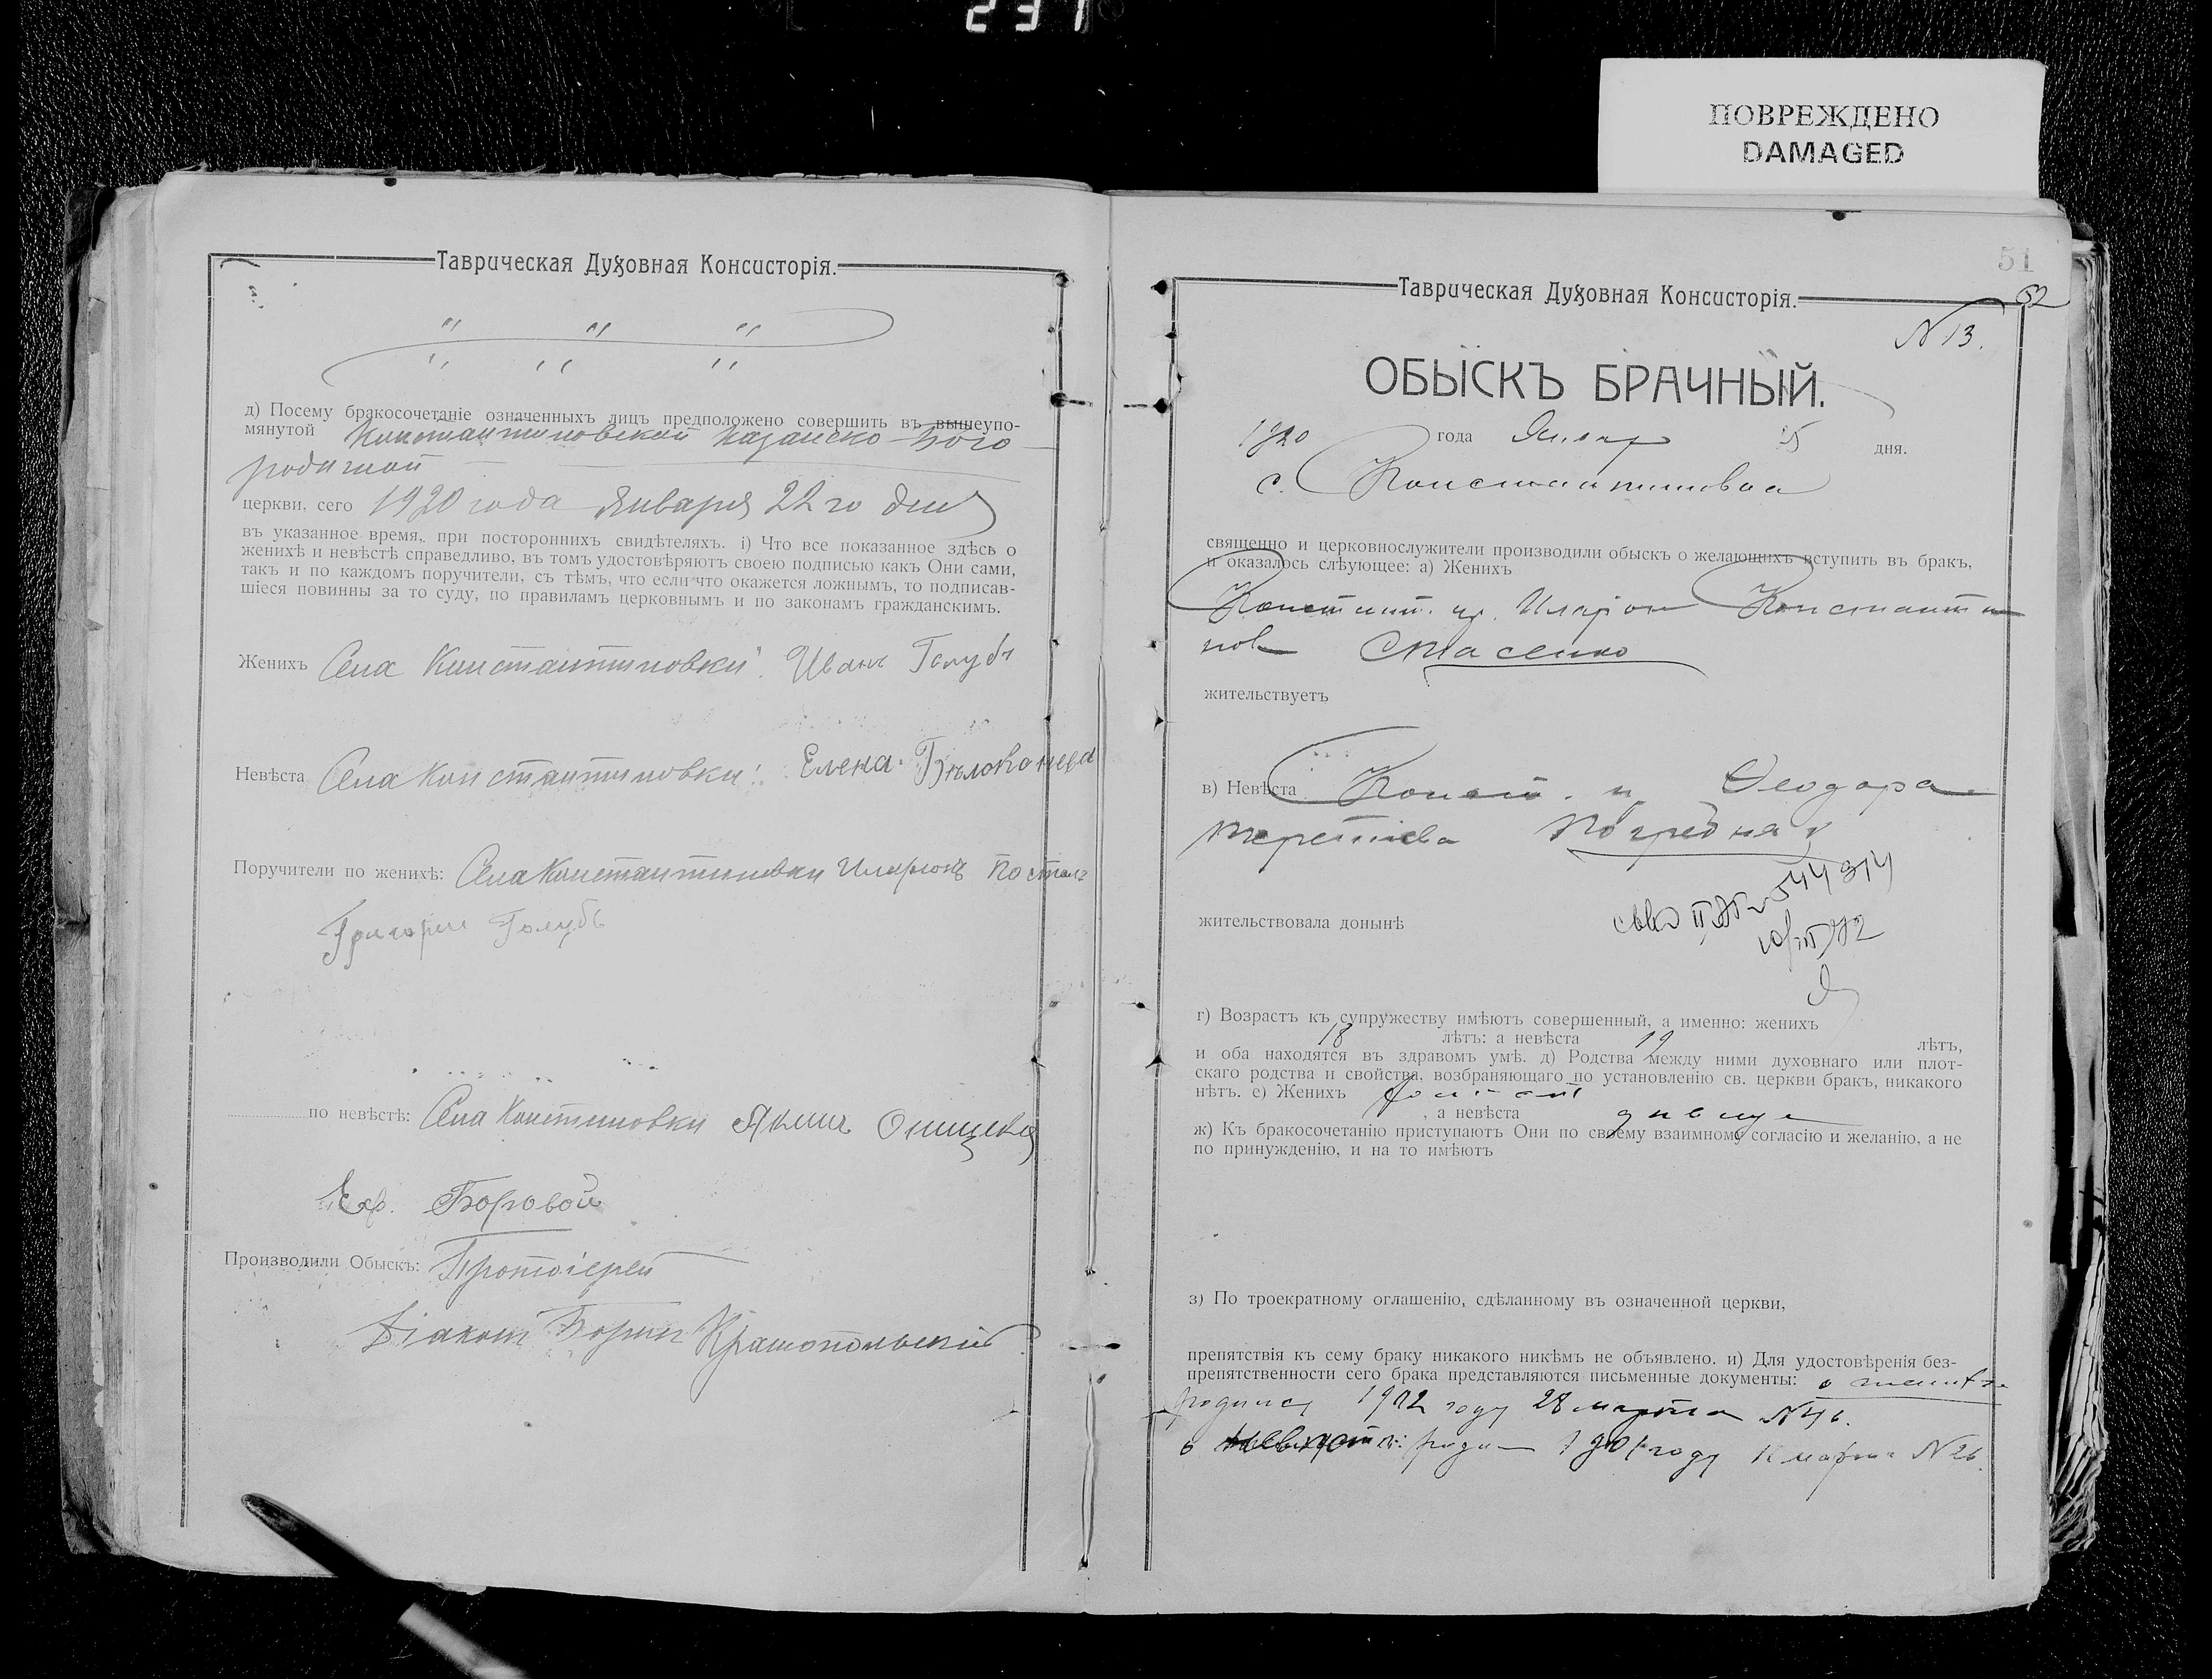 231
ПОВРЕЖДЕНО
DAMAGED
Таврическая Духовная Консисторія.
" " "
" " "
д) Посему бракосочетаніе означенныхъ лицъ предположено совершить въ вышеупо-
мянутой Константиновской Казанско-Бого
родичной
церкви, сего 1920 года Января 22 го дня
въ указанное время, при постороннихъ свидѣтеляхъ. і) Что все показанное здѣсь о
женихѣ и невѣстѣ справедливо, въ томъ удостовѣряютъ своею подписью какъ Они сами,
такъ и по каждомъ поручители, съ тѣмъ, что если что окажется ложнымъ, то подписав-
шіеся повинны за то суду, по правиламъ церковнымъ и по законамъ гражданскимъ.
Женихъ Села Константиновки Иванъ Голубъ
Невѣста Села Константиновки Елена
Поручители по женихѣ: Села Константиновки Иларіонъ
Григорій Голубъ
по невѣстѣ: Села
Боровой
Производили Обыскъ: Протоіерей
Діаконъ Борисъ
51
52
Таврическая Духовная Консисторія.
N 13.
ОБЫСКЪ БРАЧНЫЙ.
1920 года Январ 25 дня.
с. Константиновка
священно и церковнослужители производили обыскъ о желающихъ вступить въ бракъ,
и оказалось слѣующее: а) Женихъ
Констант. Иларіон Константи
нов Стасенко
жительствуетъ
в) Невѣста Конст. Феодора
Терентіева
жительствовала донынѣ
г) Возрастъ къ супружеству имѣютъ совершенный, а именно: женихъ
18 лѣтъ: а невѣста 19 лѣтъ,
и оба находятся въ здравомъ умѣ. д) Родства между ними духовнаго или плот-
скаго родства и свойства, возбраняющаго по установленію св. церкви бракъ, никакого
нѣтъ. е) Женихъ холост
, а невѣста девица
ж) Къ бракосочетанію приступаютъ Они по своему взаимному согласію и желанію, а не
по принужденію, и на то имѣютъ
з) По троекратному оглашенію, сдѣланному въ означенной церкви,
препятствія къ сему браку никакого никѣмъ не объявлено. и) Для удостовѣренія без-
препятственности сего брака представляются письменные документы: о женихе
родился 1902 году 28 марта N 46.
о невесте: 1901 году марта N 26.